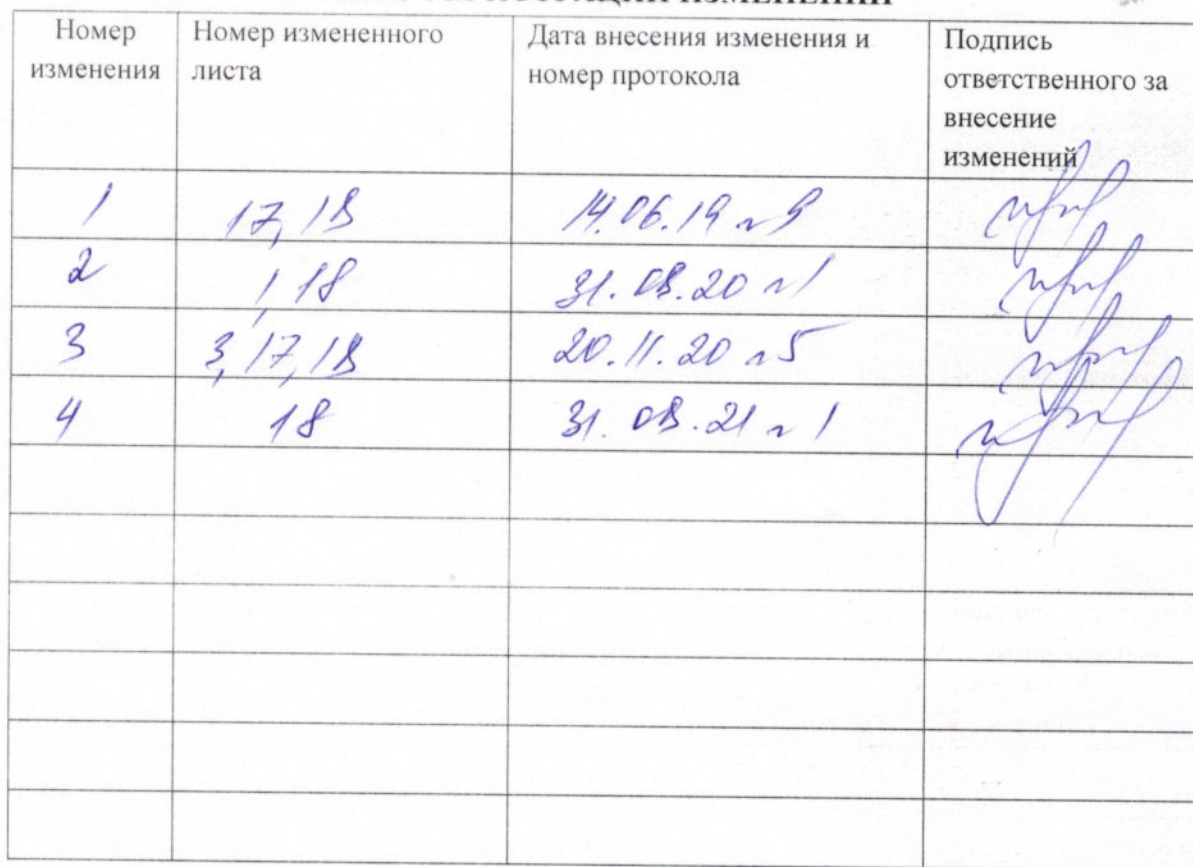 ИЗМЕНЕНИЙ
Номер изменения
Номер измененного листа
Дата внесения изменения и номер протокола
Подпись ответственного за внесение изменений
1
17, 18
14.06.19 №9
2
1, 18
31.08.20 №1
3
3, 17, 18
20.11.20 №5
4
18
31.08.21 №1